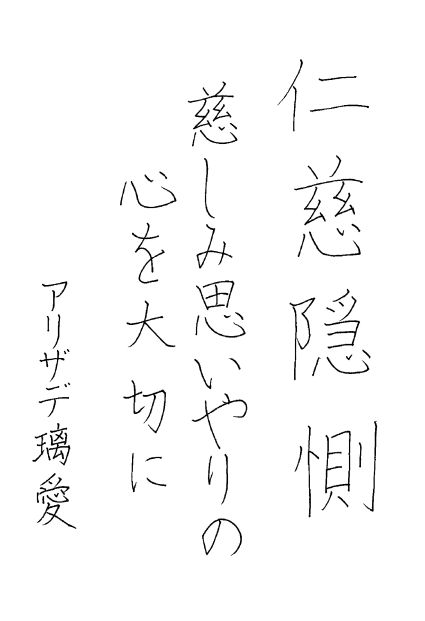 仁慈隠惻
慈しみ思いやりの
心を大切に
アリザデ璃愛